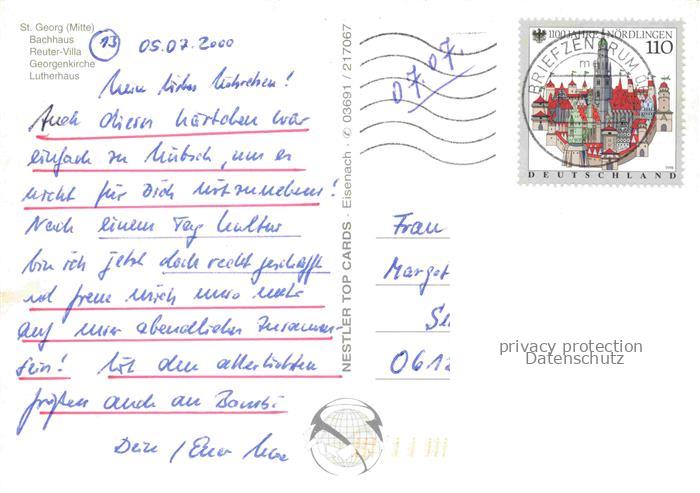 St. Georg (Mitte)
Bachhaus
Reuter-Villa
Georgenkirche
Lutherhaus
13 05.07.2000
Mein liebes !
Auch dieses Kärtchen war
einfach zu hübsch, um es
nicht für Dich mitzunehmen!
Nach einem Tag Kultur
bin ich jetzt doch recht geschafft
und freue mich umso mehr
auf unser abendliches Zusammen-
sein! Mit den allerliebsten
Grüßen auch an Bambi
Dein / Euer
NESTLER TOP CARDS · Eisenach · ✆ 03691 / 217067
07.07.
1100 JAHRE NÖRDLINGEN
110
BRIEFZENTRUM
DEUTSCHLAND
Frau
Margot
0612
privacy protection
Datenschutz